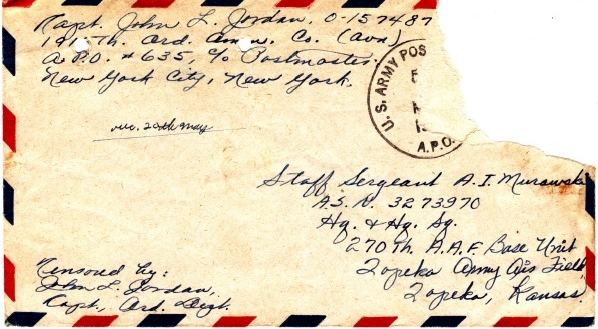 Capt. John L. Jordan, O-157487
1915th. Ord. Amm. Co. (avn)
A.P.O. # 635, c/o Postmaster.
New York City, New York.
U.S. ARMY POS
A.P.O.
rec. 20th May
Staff Sergeant A.I. Murawski
A.S.N. 3273970
Hq. & Hq. Sq.
270Th. A.A.F. Base Unit
Topeka Army Air Field,
Topeka, Kansas.
Censored by:
John L. Jordan,
Capt., Ord. Dept.